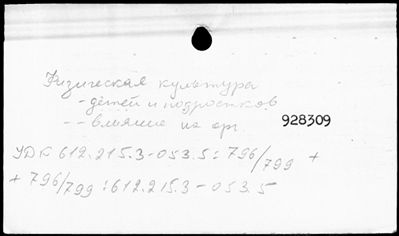 Физическая культура
- детей и подростков
-- влияние на орг. 928309
УДК 612.215.3-053.5:796/799 +
+ 796/799:612.215.3-053.5